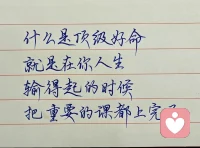 什么是顶级好命
就是在你人生
输得起的时候
把重要的课都上完